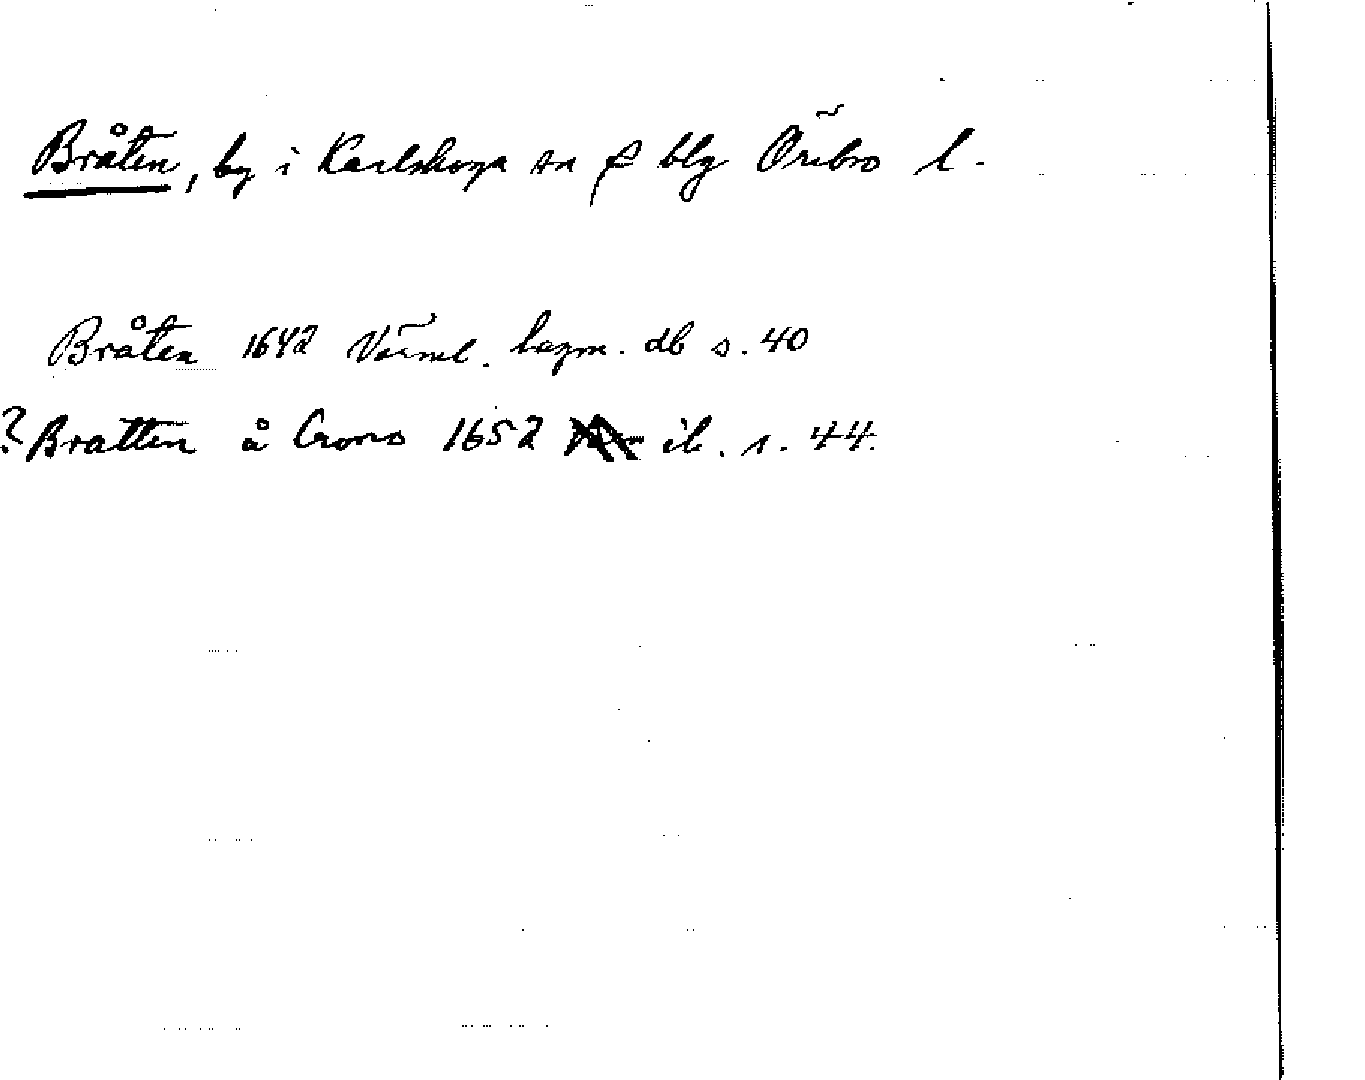 Bråten, by i Karlskoga sn f blg Örebro l.
Bråten 1642 Värml. bergm. db s. 40
? Bratten å Crono 1652 ib. s. 44.